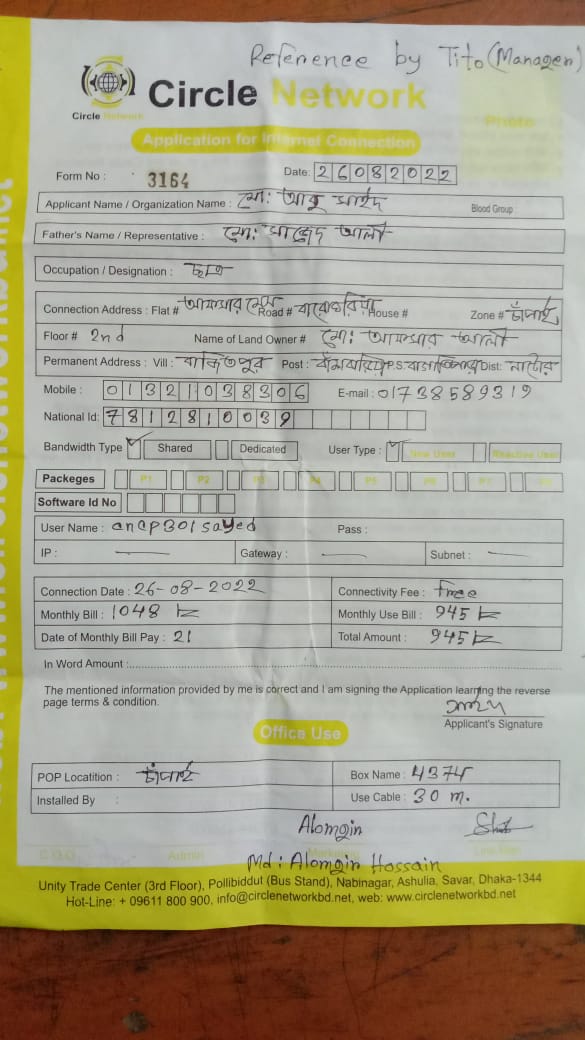 Reference by Tito (Manager)
Circle Network
Circle Network
Photo
Application for Internet Connection
Form No : 3164 Date: 26082022
Applicant Name / Organization Name : মো: আবু সাইদ Blood Group
Father's Name / Representative : মো: সাজেদ আলী
Occupation / Designation : ছাত্র
Connection Address : Flat # Road # House # Zone # চাঁপাই
Floor # 2nd Name of Land Owner # মো: আফসার আলী
Permanent Address : Vill : Post : P.S: Dist: নাটোর
Mobile : 01321038306 E-mail : 01738589319
National Id: 7812810039
Bandwidth Type Shared Dedicated User Type : New User Reactive User
Packeges P1 P2 P3 P4 P5 P6 P7 P8
Software Id No
User Name : anap301sayed Pass :
IP : — Gateway : — Subnet : —
Connection Date : 26-08-2022 Connectivity Fee : free
Monthly Bill : 1048 Monthly Use Bill : 945
Date of Monthly Bill Pay : 21 Total Amount : 945
In Word Amount :
The mentioned information provided by me is correct and I am signing the Application learning the reverse
page terms & condition.
Applicant's Signature
Office Use
POP Locatition : চাঁপাই Box Name : 4374
Installed By : Use Cable : 30 m.
Alomgin
C.O.O Admin Marketing
Md : Alomgin Hossain
Unity Trade Center (3rd Floor), Pollibiddut (Bus Stand), Nabinagar, Ashulia, Savar, Dhaka-1344
Hot-Line: + 09611 800 900, info@circlenetworkbd.net, web: www.circlenetworkbd.net